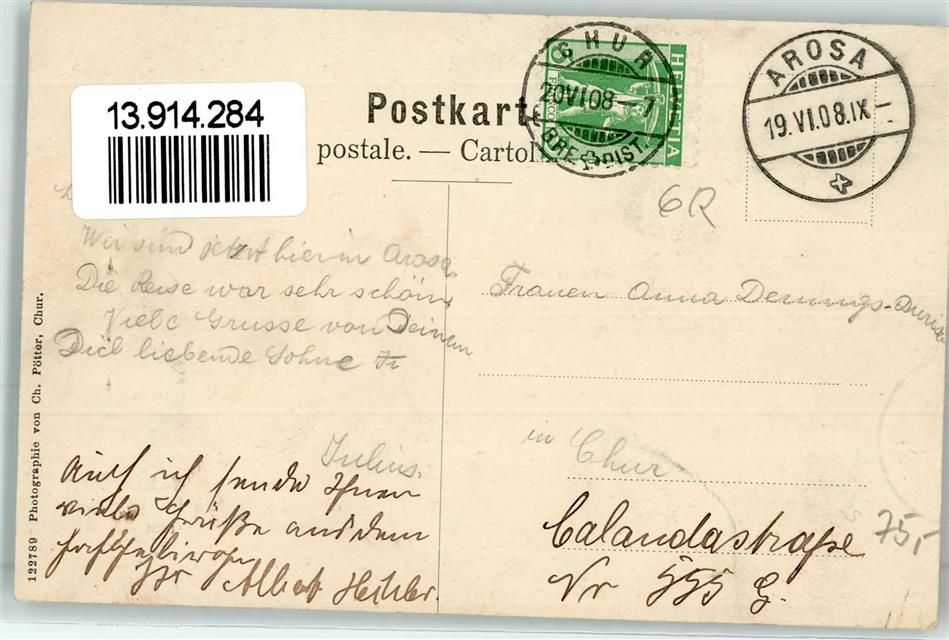 13.914.284
Postkart
postale. — Cartol
CHUR
20 VI 08 - 7
BRF. DIST.
HELVETIA
FRANCO
AROSA
19. VI. 08. IX -
6R
Wir sind jetzt hier in Arosa
Die Reise war sehr schön
Viele Grusse von Deinem
Dich liebende Sohne
Julius.
Auch ich sende Ihnen
viele Grüße aus dem
Ihr Albert
Frauen Anna
in Chur
Calandastraße
Nr 555 G.
75,-
122789 Photographie von Ch. Pötter, Chur.